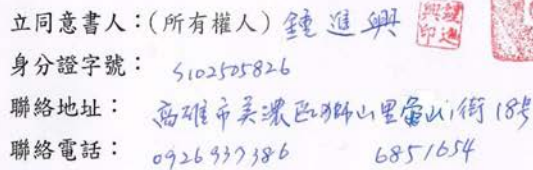 立同意書人：(所有權人) 鍾進興
鍾進興印
身分證字號： S102505826
聯絡地址： 高雄市美濃區獅山里龠山街18號
聯絡電話： 0926937386 6851654